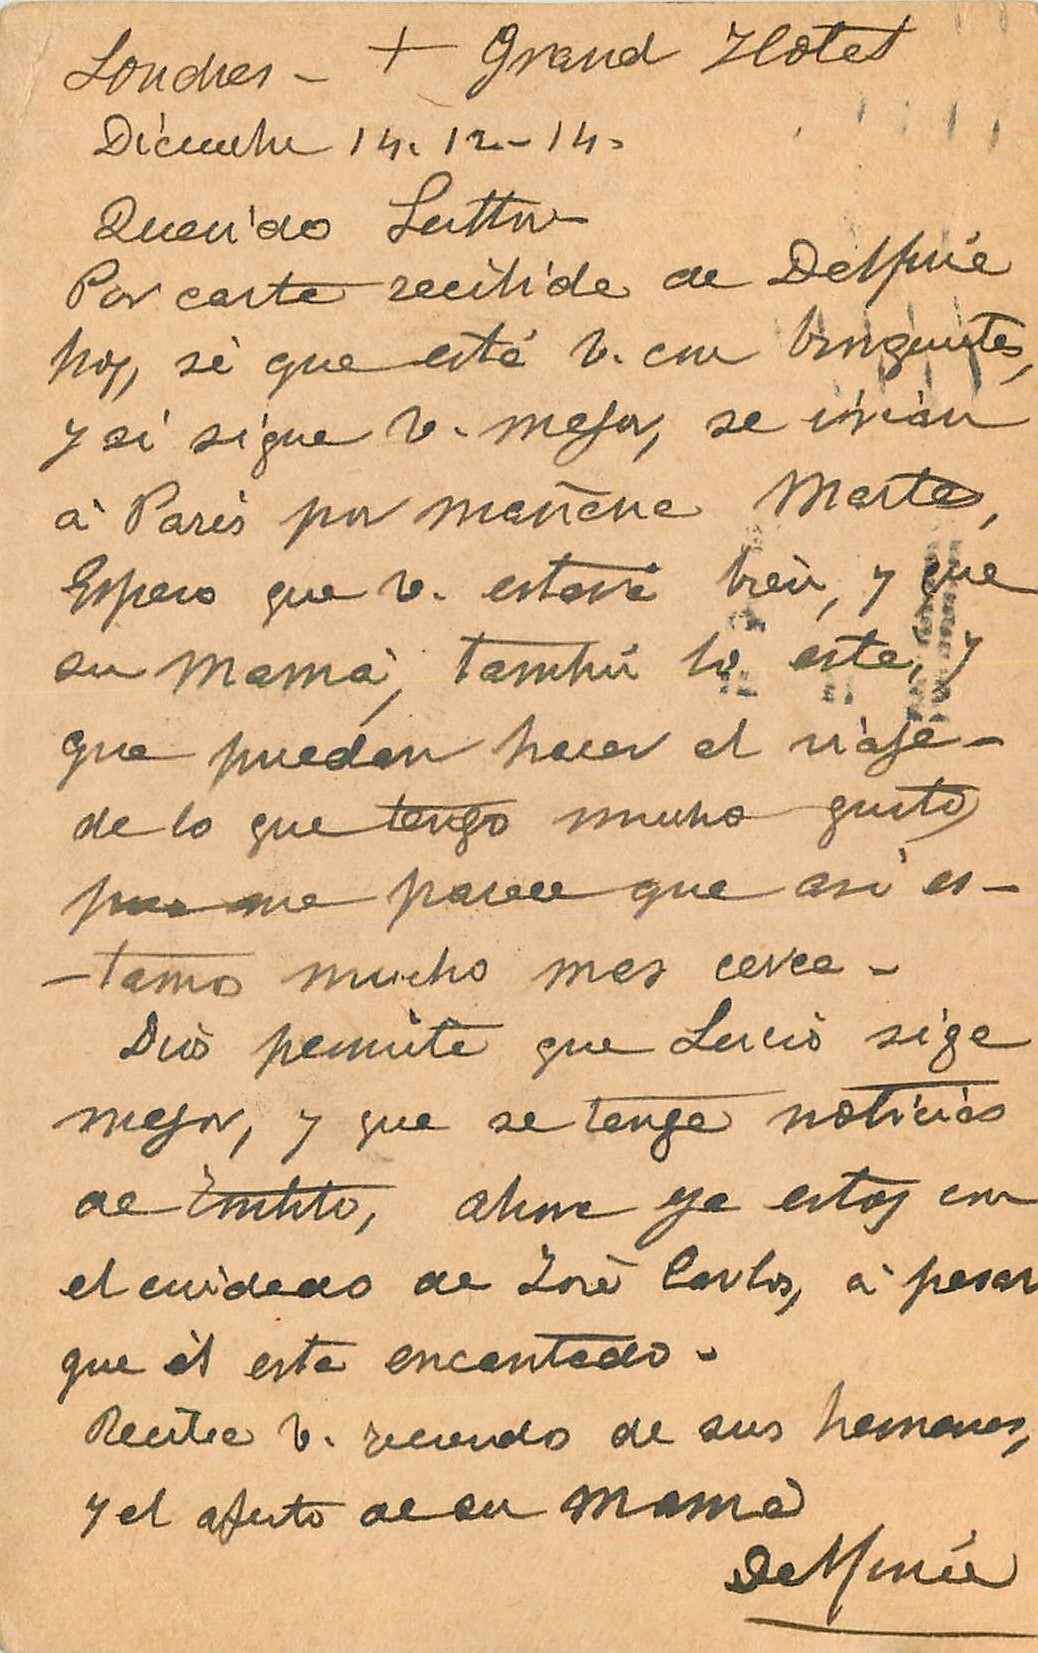 Londres - + Grand Hotel
Diciembre 14. 12-14.
Querido
Por carta recibida de Delfina
hoy, sé que está V. con
y si sigue V. mejor, se irian
à Paris por mañana Martes,
Espero que V. estará bien, y que
su Mamà, también lo este, y
que puedan hacer el viaje -
de lo que tengo mucho gusto,
pues me parece que asi es-
- tamo mucho mas cerca -
Dios permita que Lucio siga
mejor, y que se tenga noticias
de Emilito, ahora ya estoy con
el cuidado de José Carlos, à pesar
que él esta encantado -
Recibe V. recuerdo de sus hermanas,
y el afecto de su Mamà
Delfina